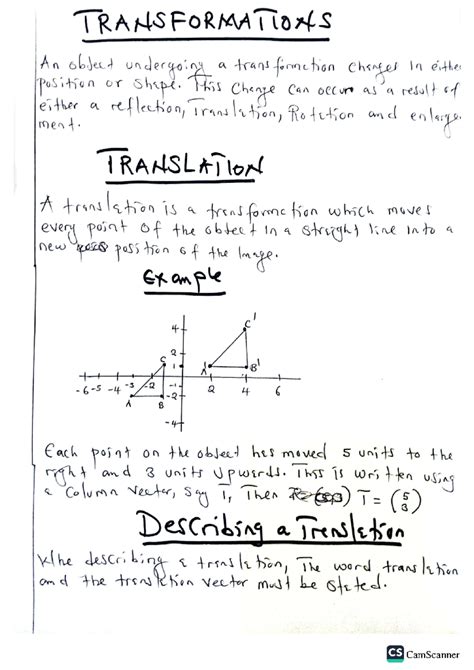 TRANSFORMATIONS
An object undergoing a transformation changes in either
position or shape. This change can occur as a result of
either a reflection, Translation, Rotation and enlarge-
ment.
TRANSLATION
A translation is a transformation which moves
every point of the object in a straight line into a
new position of the Image.
Example
4 C'
2
C 1 A' B'
-6 -5 -4 -3 -2 -1 2 4 6
A B -2
-4
Each point on the object has moved 5 units to the
right and 3 units upwards. This is written using
a column vector, say T, Then T = (5 3)
Describing a Translation
describing a translation, The word translation
and the translation vector must be stated.
CS CamScanner